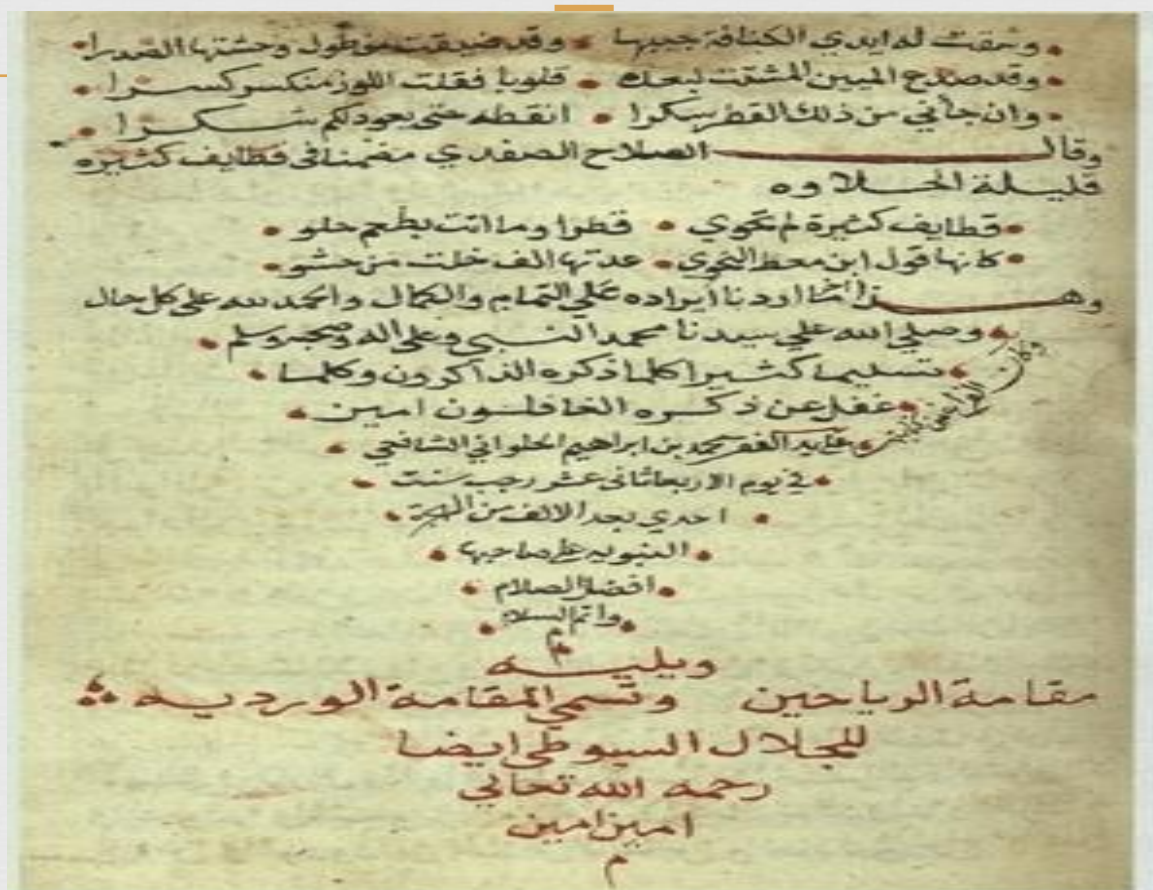 وشقت له ايدي الكنافة جيبها وقد ضيقت من طول وحشتها الصدرا
وقد صلاح الميين المشتت لبعدك قلوبا فقلت اللوز منكسر كسرا
وان جاني من ذلك القطر سكرا انقطه حتى يعود لكم شكرا
وقال الصلاح الصفدي مضمنا في قطايف كثيره
قليلة الحلاوه
قطايف كثيرة لم تحوي قطرا وما اتت بطعم حلو
كانها قول ابن معط النحوي عدتها الف خلت من حشو
وهذا اخر ما اردنا ايراده علي التمام والكمال والحمد لله على كل حال
وصلي الله علي سيدنا محمد النبي وعلى اله وصحبه وسلم
تسليما كثيرا كلما ذكره الذاكرون وكلما
غفل عن ذكره الغافلون امين
وكان الفراغ من كتابته
علي يد الفقير محمد بن ابراهيم الحلواني الشافعي
في يوم الاربعا ثاني عشر رجب سنت
احدي بعد الالف من الهجرة
النبويه على صاحبها
افضل الصلام
واتم السلام
ويليه
مقامة الرياحين وتسمي المقامة الورديه
للجلال السيوطي ايضا
رحمه الله تعالي
امين امين
م